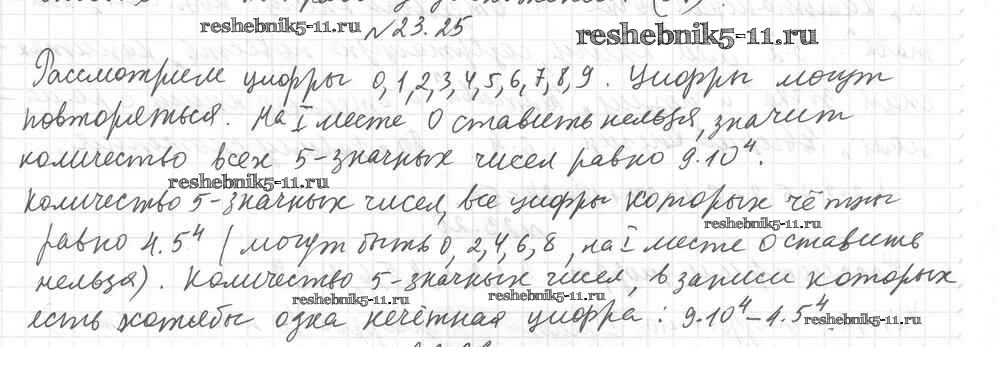 reshebnik5-11.ru
№23.25
reshebnik5-11.ru
Рассмотрим цифры 0,1,2,3,4,5,6,7,8,9. Цифры могут
повторяться. На I месте 0 ставить нельзя, значит
количество всех 5-значных чисел равно 9·10⁴.
reshebnik5-11.ru
Количество 5-значных чисел, все цифры которых чётны
reshebnik5-11.ru
равно 4·5⁴ (могут быть 0, 2, 4, 6, 8, на I месте 0 ставить
нельзя). Количество 5-значных чисел, в записи которых
reshebnik5-11.ru reshebnik5-11.ru
есть хотябы одна нечётная цифра: 9·10⁴-4·5⁴
reshebnik5-11.ru